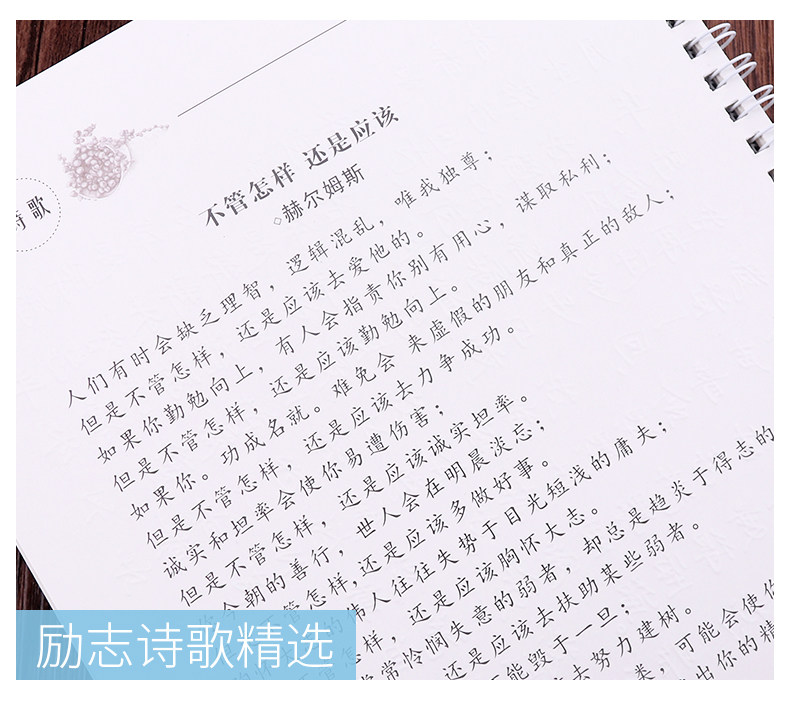 诗歌
不管怎样 还是应该
◇赫尔姆斯
人们有时会缺乏理智，逻辑混乱，唯我独尊；
但是不管怎样，还是应该去爱他的。
如果你勤勉向上，有人会指责你别有用心，谋取私利；
但是不管怎样，还是应该勤勉向上。
如果你。功成名就。难免会 来虚假的朋友和真正的敌人；
但是不管怎样，还是应该去力争成功。
诚实和坦率会使你易遭伤害；
但是不管怎样，还是应该诚实坦率。
今朝的善行，世人会在明晨淡忘；
不管怎样，还是应该多做好事。
的伟人往往失势于目光短浅的庸夫；
怎样，还是应该胸怀大志。
常怜悯失意的弱者，却总是趋炎于得志的
还是应该去扶助某些弱者。
能毁于一旦；
去努力建树。
类，可能会使你
出你的精
励志诗歌精选